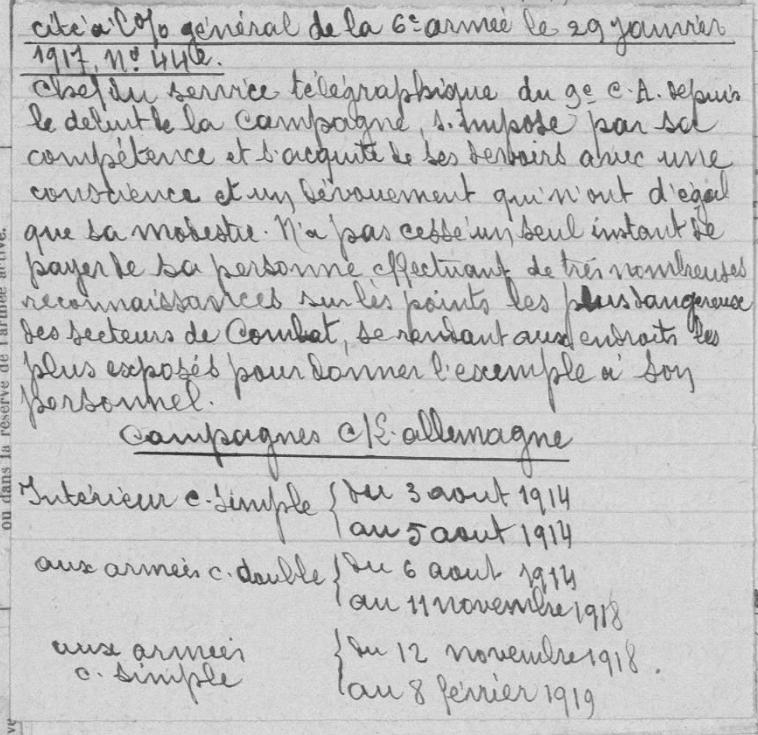 cité à l'o/o général de la 6e armée le 29 janvier
1917, No 446.
Chef du service télégraphique du 9e C.A. depuis
le début de la Campagne, s'impose par sa
compétence et s'acquite de ses devoirs avec une
conscience et un dévouement qui n'ont d'égal
que sa modestie. N'a pas cessé un seul instant de
payer de sa personne effectuant de très nombreuses
reconnaissances sur les points les plus dangereux
des secteurs de Combat, se rendant aux endroits les
plus exposés pour donner l'exemple à son
personnel.
Campagnes c/l'allemagne
Intérieur c. simple { du 3 aout 1914
au 5 aout 1914
aux armées c. double { du 6 aout 1914
au 11 novembre 1918
aux armées { du 12 novembre 1918.
c. simple au 8 février 1919
ou dans la réserve de l'armée active.
ve